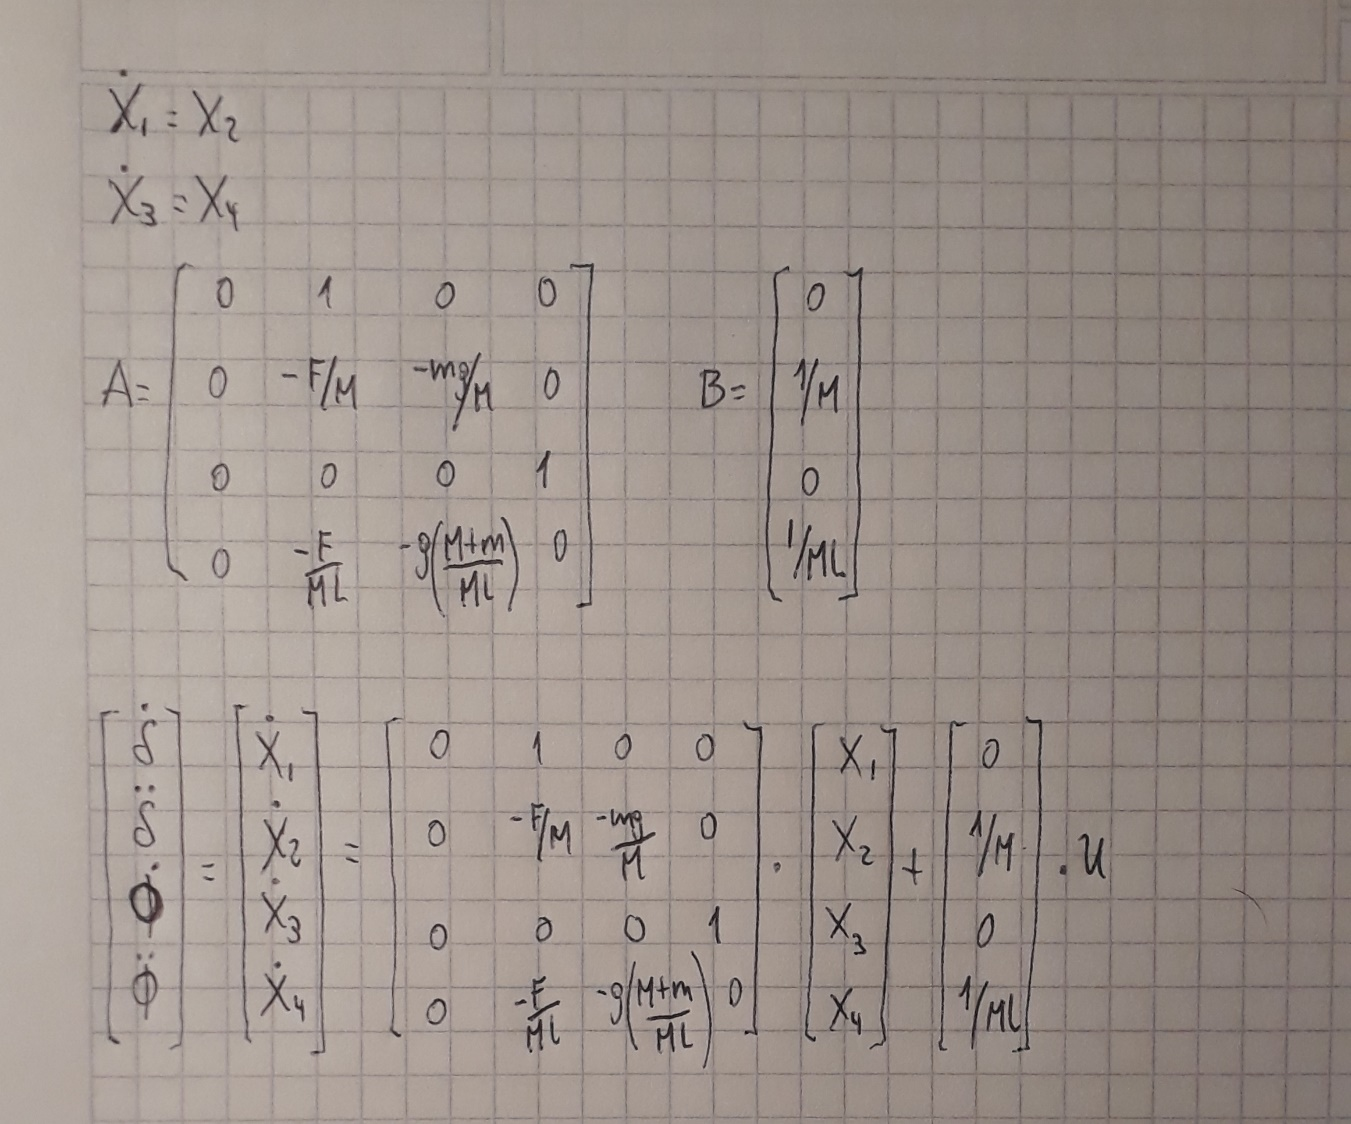 Ẋ₁ = X₂
Ẋ₃ = X₄
A = [ 0 1 0 0 ; 0 -F/M -mg/M 0 ; 0 0 0 1 ; 0 -F/ML -g(M+m/ML) 0 ] B = [ 0 ; 1/M ; 0 ; 1/ML ]
[ δ̇ ; δ̈ ; ϕ̇ ; ϕ̈ ] = [ Ẋ₁ ; Ẋ₂ ; Ẋ₃ ; Ẋ₄ ] = [ 0 1 0 0 ; 0 -F/M -mg/M 0 ; 0 0 0 1 ; 0 -F/ML -g(M+m/ML) 0 ] · [ X₁ ; X₂ ; X₃ ; X₄ ] + [ 0 ; 1/M ; 0 ; 1/ML ] · u